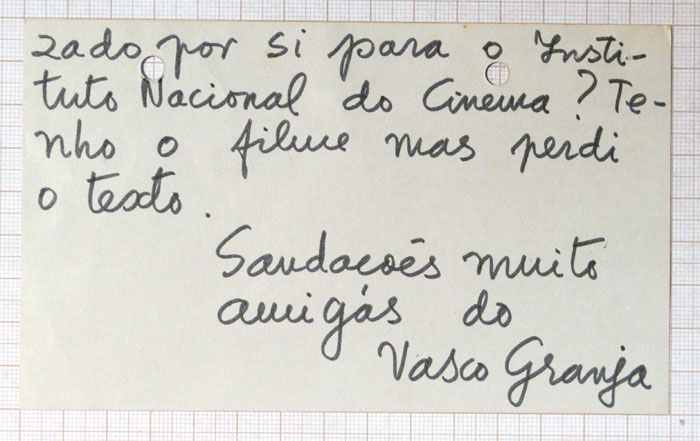 zado por si para o Insti-
tuto Nacional do Cinema? Te-
nho o filme mas perdi
o texto.
Saudacoēs muito
amigás do
Vasco Granja